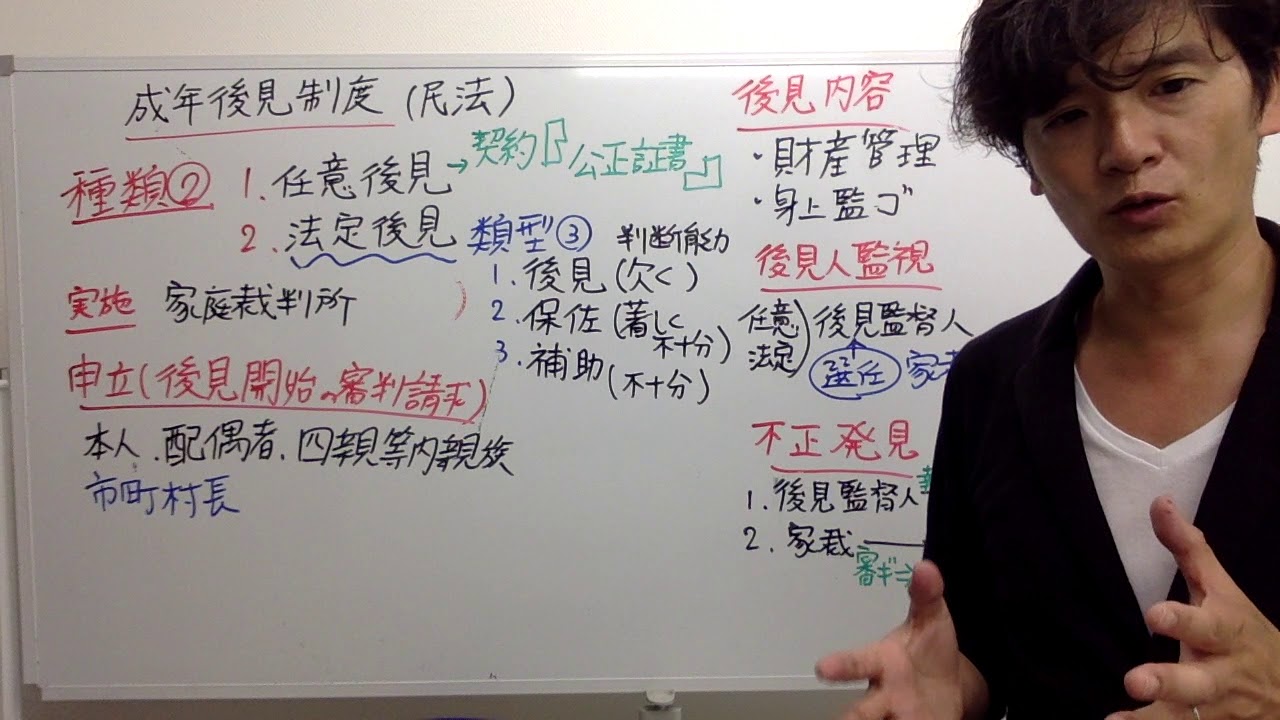 成年後見制度(民法)
種類② 1. 任意後見 → 契約『公正証書』
2. 法定後見 類型③ 判断能力
1. 後見(欠く)
2. 保佐(著しく不十分)
3. 補助(不十分)
実施 家庭裁判所
申立(後見開始の審判請求)
本人、配偶者、四親等内親族
市町村長
後見内容
・財産管理
・身上監ゴ
後見人監視
任意
法定
後見監督人
選任
不正発見
1. 後見監督人
2. 家裁